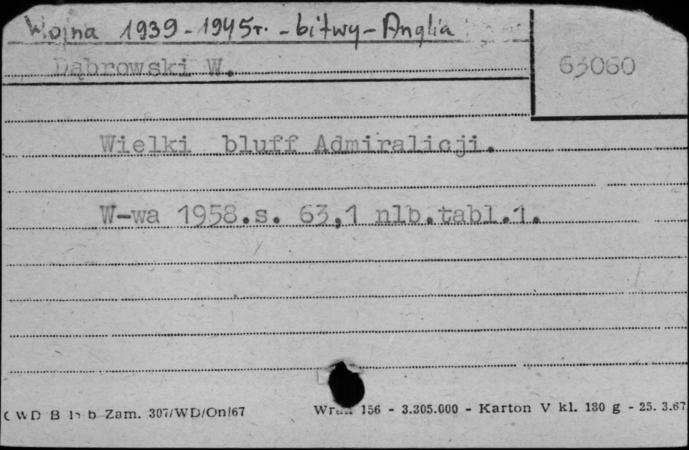 Wojna 1939-1945r. - bitwy - Anglia
Dąbrowski W.
63060
Wielki bluff Admiralicji.
W-wa 1958.s. 63,1 nlb.tabl.1.
CWD B Zam. 307/WD/On/67
156 - 3.305.000 - Karton V kl. 180 g - 25. 3.67